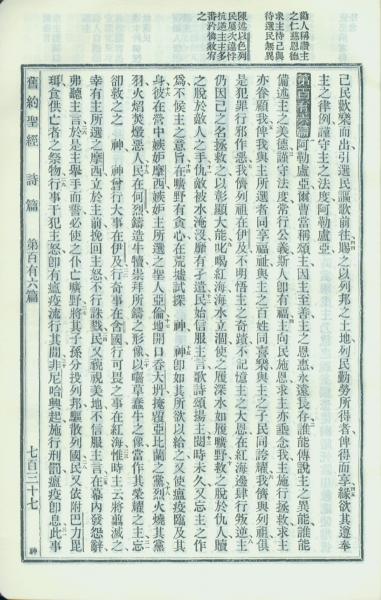 勸人稱讚主
之仁慈恩德
求主待己與
待選民無異
陳述以色列
民屢次違忤
抗逆主主多
番矜憐赦宥
之
己民歡樂而出引選民謳歌前往賜之以列邦之土地列民勤勞所得者俾得而享緣欲其遵奉
主之律例謹守主之法度阿勒盧亞
第百有六篇 阿勒盧亞爾曹當稱頌主因主至善主之恩惠永遠長存誰能傳說主之異能誰能
備述主之美德謹守法度常行公義斯人即有福主向民施恩求主亦垂念我主施行拯救求主
亦眷顧我俾我與主所選者同享福祉與主之百姓同喜樂與主之子民同誇耀我儕與列祖俱
是犯罪行邪作惡我儕列祖在伊及不明悟主之奇蹟不記憶主之大恩在紅海邊肆行叛逆主
仍因己之名拯救之以彰顯大能叱喝紅海海水立涸使之履深水如履曠野救之脫於仇人贖
之脫於敵人之手仇敵被水淹沒靡有孑遺民始信服主言歌詩頌揚主閱時未久又忘主之作
為不候主之意旨在曠野有貪心在荒墟試探 神 神即如其所欲以給之又使瘟疫臨及其
身彼在營中嫉妒摩西嫉妒主所選之聖人亞倫地開口吞大坍掩覆亞比蘭之黨烈火燒其黨
羽火焰焚燬惡人民在何烈鑄造牛犢崇拜所鑄之形像以囓草蠢牛之像當作其榮耀之主忘
卻救之之 神 神曾行大事在伊及行奇事在含國行可畏之事在紅海惟時主云將翦滅之
幸有主所選之摩西立於主前挽回主怒不行誅戮民又藐視美地不信服主言在幕內發怨讟
弗聽主言於是主舉手而誓必使之仆亡曠野將其子孫分投列邦驅散列國民又依附巴力毘
珥食供亡者之祭物行事干犯主怒卽有瘟疫流行其間非尼哈興起施行刑罰瘟疫卽息此事
舊約聖經 詩篇 第百有六篇 七百三十七